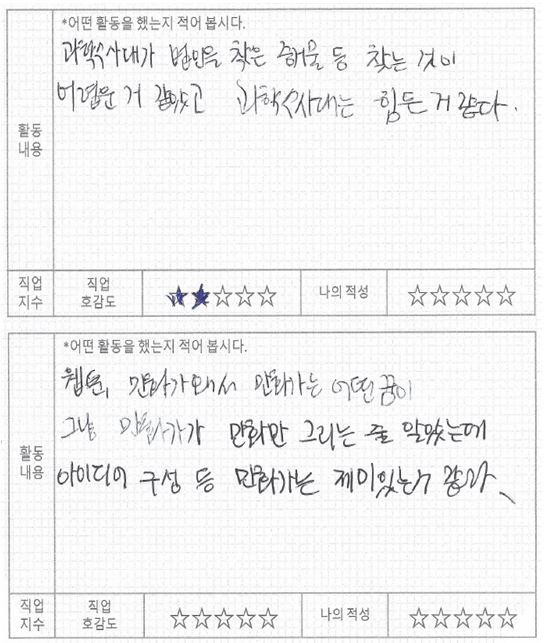 *어떤 활동을 했는지 적어 봅시다.
과학수사대가 범인을 찾은 증거물 등 찾는 것이
어려운 거 같았고 과학수사대는 힘든 거 같다.
활동
내용
직업
지수
직업
호감도
★★☆☆☆
나의 적성
☆☆☆☆☆
*어떤 활동을 했는지 적어 봅시다.
웹툰, 만화가와서 만화가는 어떤 꿈이
그냥 만화가가 만화만 그리는 줄 알았는데
아이디어 구성 등 만화가는 제미있는거 같다.
활동
내용
직업
지수
직업
호감도
☆☆☆☆☆
나의 적성
☆☆☆☆☆